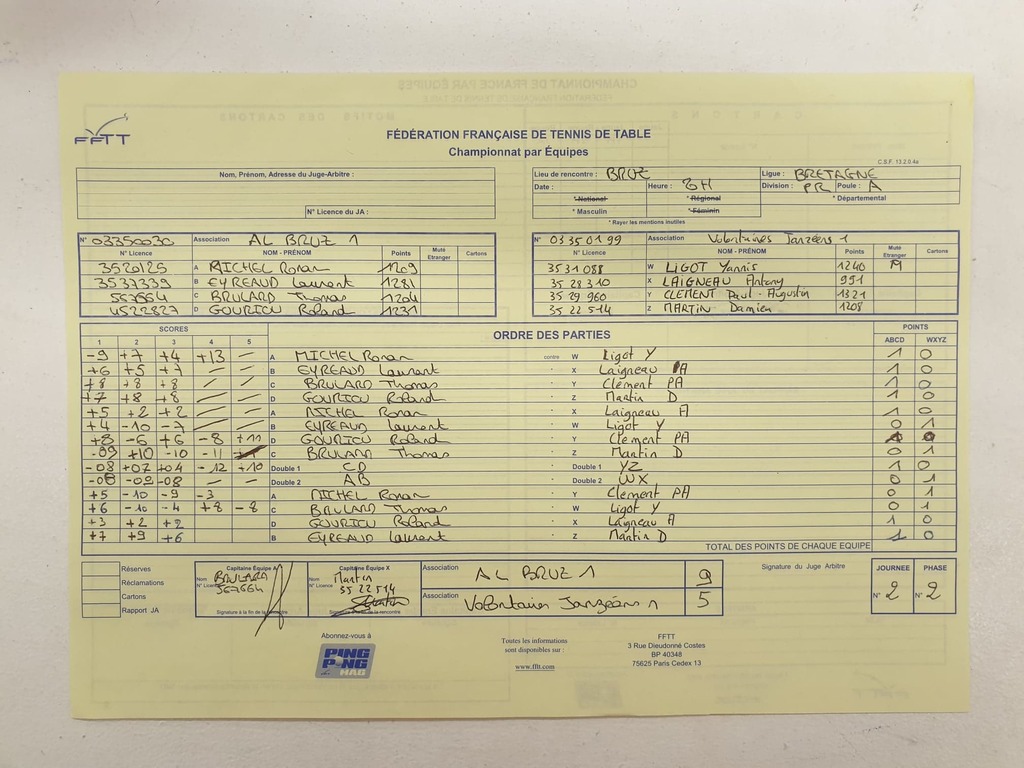 FFTT
FÉDÉRATION FRANÇAISE DE TENNIS DE TABLE
Championnat par Équipes
C.S.F. 13.2.0.4a
Nom, Prénom, Adresse du Juge-Arbitre :
N° Licence du JA :
Lieu de rencontre : BRUZ Ligue : BRETAGNE
Date : Heure : 8H Division : PR Poule : A
* National * Régional * Départemental
* Masculin * Féminin
* Rayer les mentions inutiles
N° 03350030 Association AL BRUZ 1
N° Licence NOM - PRÉNOM Points Muté Etranger Cartons
3520125 A MICHEL Ronan 1209
3537339 B EYREAUD Laurent 1281
567664 C BRULARD Thomas 1204
4522827 D GOURIOU Roland 1231
N° 03350199 Association Volontaires Janzéens 1
N° Licence NOM - PRÉNOM Points Muté Etranger Cartons
3531088 W LIGOT Yannis 1240 M
35 28 310 X LAIGNEAU Antony 951
35 29 960 Y CLEMENT Paul-Augustin 1321
35 22 514 Z MARTIN Damien 1208
SCORES ORDRE DES PARTIES POINTS
1 2 3 4 5 ABCD WXYZ
-9 +7 +4 +13 — A MICHEL Ronan contre W Ligot Y 1 0
+6 +5 +7 — — B EYREAUD Laurent X Laigneau A 1 0
+8 +8 +8 — — C BRULARD Thomas Y Clément PA 1 0
+7 +8 +8 — — D GOURIOU Roland Z Martin D 1 0
+5 +2 +2 — — A MICHEL Ronan X Laigneau A 1 0
+4 -10 -7 — — B EYREAUD Laurent W Ligot Y 0 1
+8 -6 +6 -8 +11 D GOURIOU Roland Y Clément PA 1 0
-09 +10 -10 -11 C BRULARD Thomas Z Martin D 0 1
-08 +07 +04 -12 +10 Double 1 CD Double 1 YZ 1 0
-08 -09 -08 — — Double 2 AB Double 2 WX 0 1
+5 -10 -9 -3 A MICHEL Ronan Y Clément PA 0 1
+6 -10 -4 +8 -8 C BRULARD Thomas W Ligot Y 0 1
+3 +2 +2 D GOURIOU Roland X Laigneau A 1 0
+7 +9 +6 B EYREAUD Laurent Z Martin D 1 0
TOTAL DES POINTS DE CHAQUE EQUIPE
Réserves
Réclamations
Cartons
Rapport JA
Capitaine Équipe A
Nom BRULARD
N° Licence 567664
Signature à la fin de la rencontre
Capitaine Équipe X
Nom Martin
N° Licence 35 22 514
Signature à la fin de la rencontre
Association AL BRUZ 1 9
Association Volontaires Janzéens 1 5
Signature du Juge Arbitre
JOURNEE PHASE
N° 2 N° 2
Abonnez-vous à
PING PONG MAG
Toutes les informations
sont disponibles sur :
www.fftt.com
FFTT
3 Rue Dieudonné Costes
BP 40348
75625 Paris Cedex 13